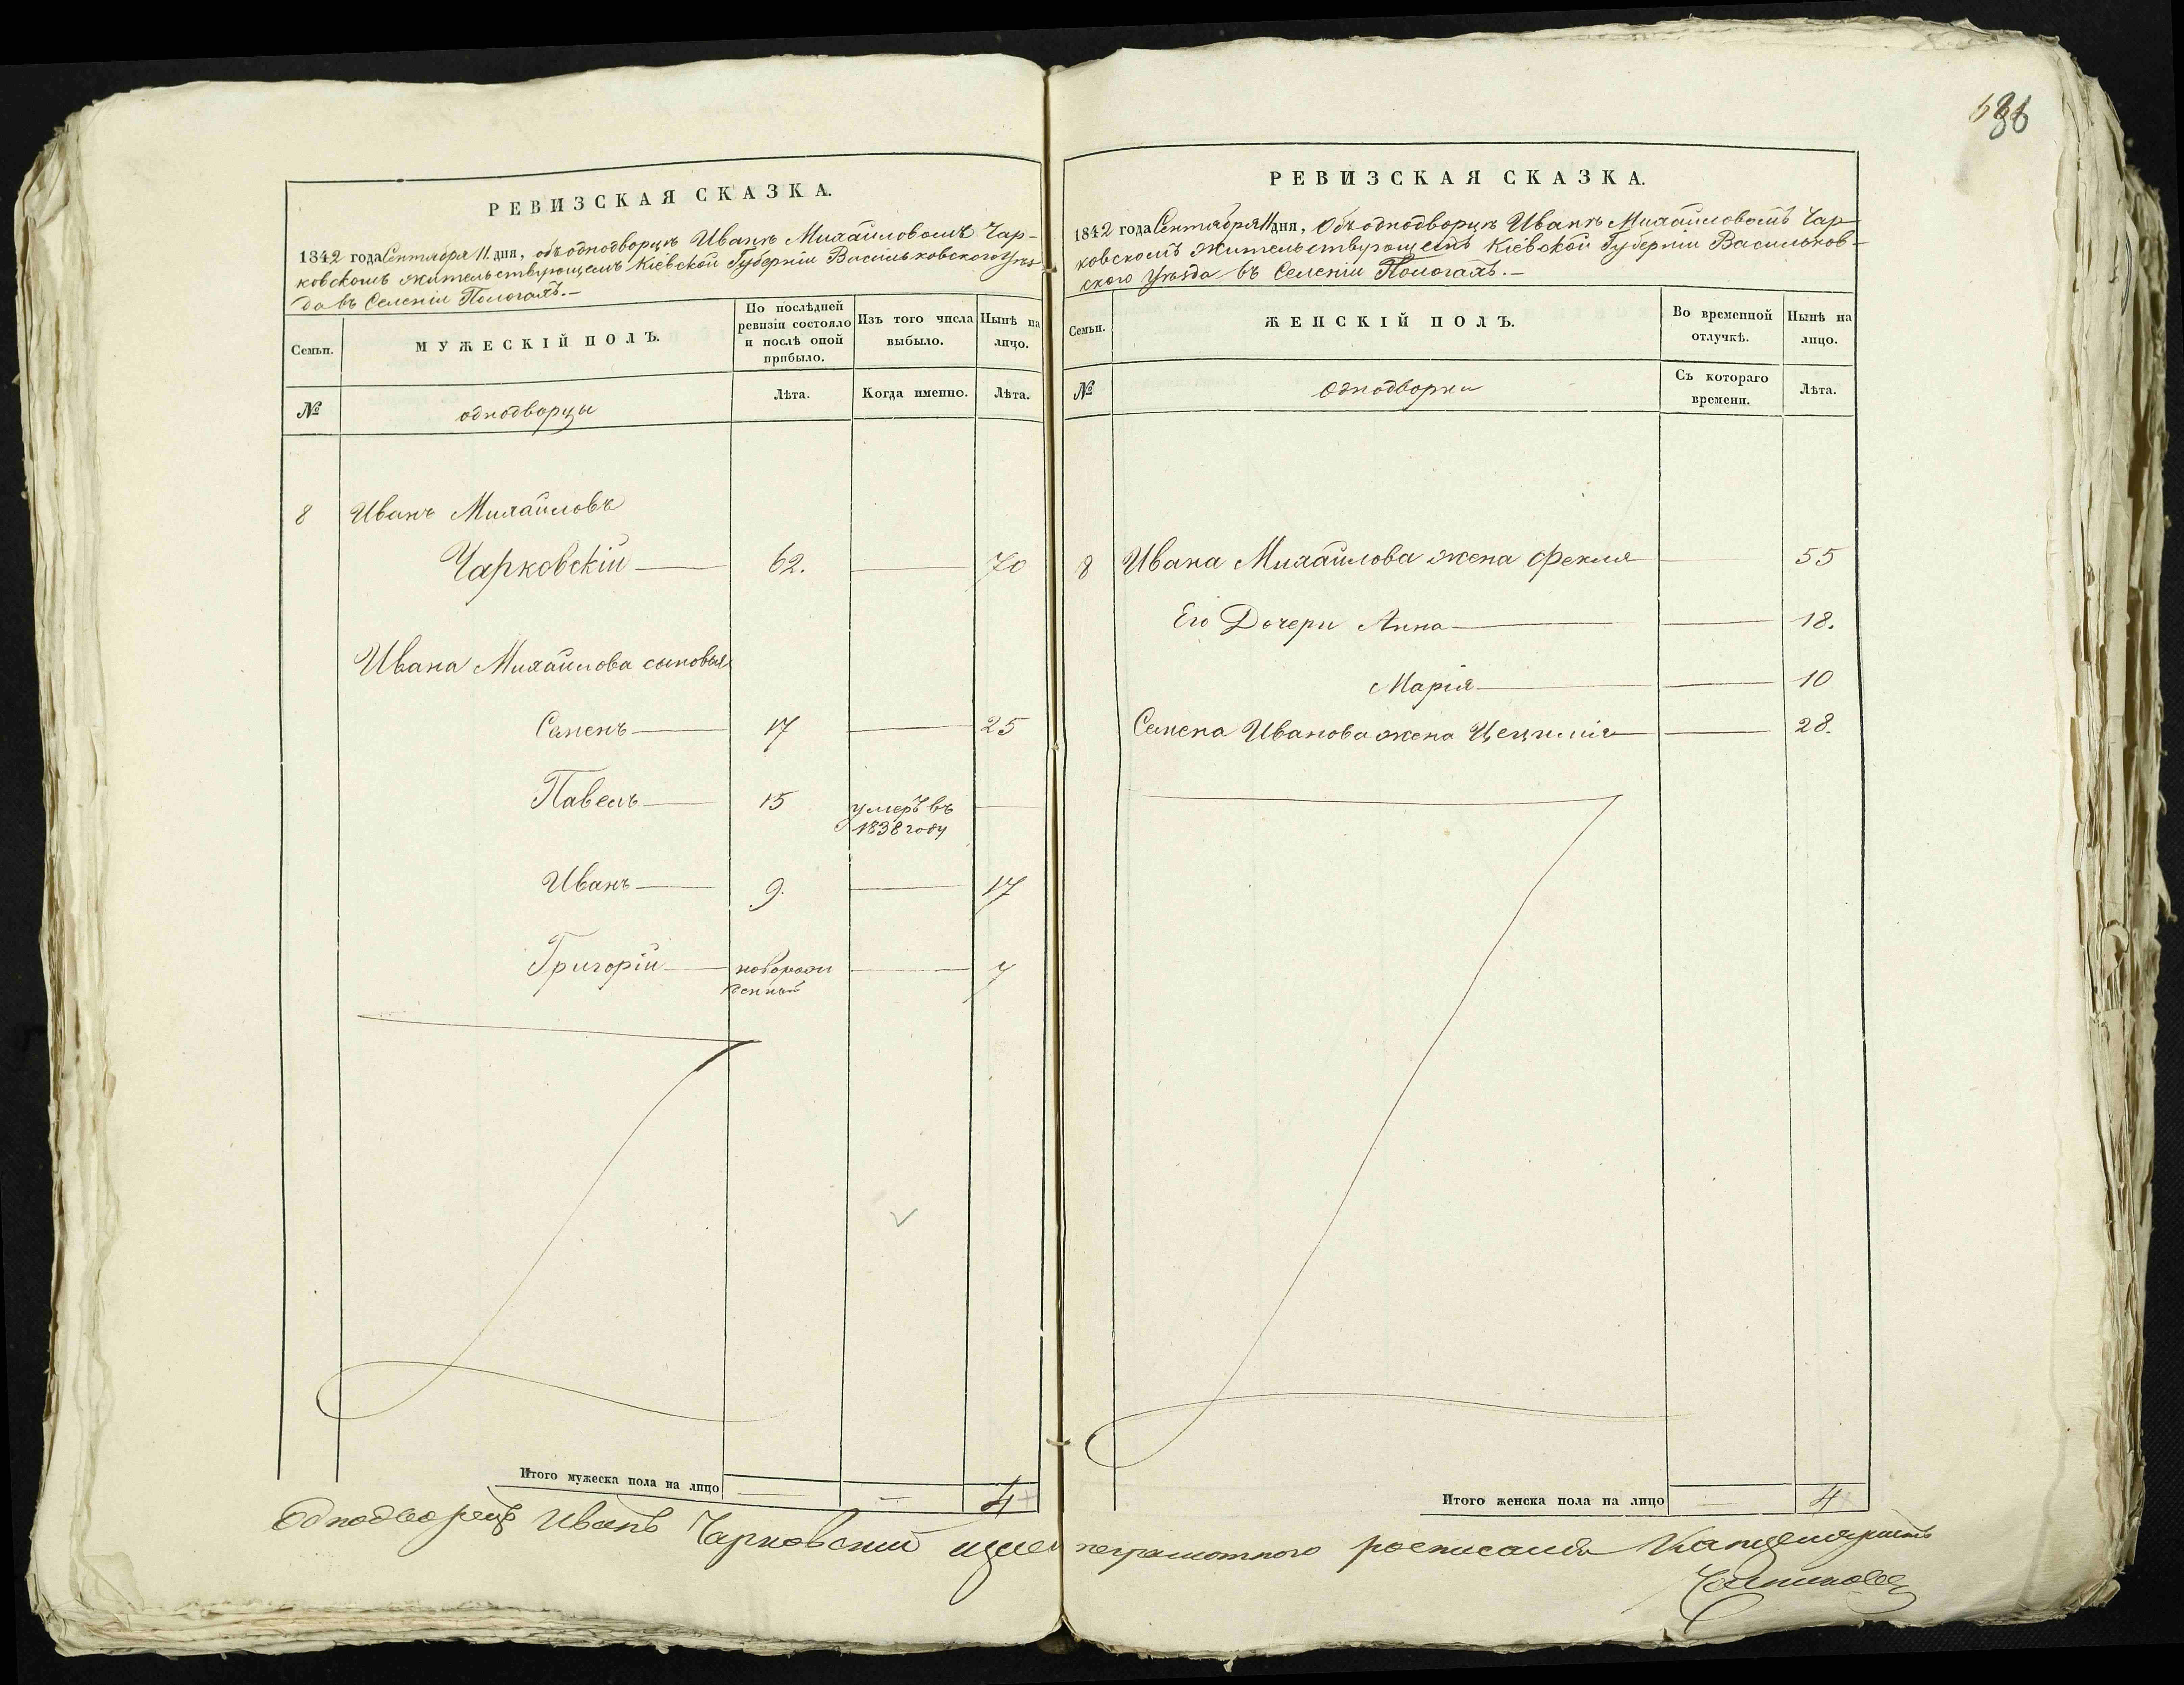 РЕВИЗСКАЯ СКАЗКА.
1842 года Сентября 11 дня, объ однодворцѣ Иванѣ Михайловомъ Чар-
ковскомъ жительствующемъ Кіевской Губерніи Васильковского Уѣз
да въ Селеніи Пологахъ.—
Семьи.
МУЖЕСКІЙ ПОЛЪ.
По послѣдней ревизіи состояло и послѣ оной прибыло.
Изъ того числа выбыло.
Нынѣ на лицо.
№
однодворцы
Лѣта.
Когда именно.
Лѣта.
8 Иванъ Михайловъ
Чарковскій — 62. — 70
Ивана Михайлова сыновья
Семенъ — 17 — 25
Павелъ — 15 умеръ въ —
1838 году
Иванъ — 9. — 17
Григорій — новорож — 7
денный
Итого мужеска пола на лицо — — 4
Однодворецъ Иванъ Чарковский
РЕВИЗСКАЯ СКАЗКА.
1842 года Сентября 11 дня, Объ однодворцѣ Иванѣ Михайловомъ Чар-
ковскомъ Жительствующемъ Кіевской Губерніи Васильков-
ского Уѣзда въ Селеніи Пологахъ.—
Семьи.
ЖЕНСКІЙ ПОЛЪ.
Во временной отлучкѣ.
Нынѣ на лицо.
№
Однодворки
Съ котораго времени.
Лѣта.
8 Ивана Михайлова жена Фекла — 55
Его Дочери Анна — — 18.
Марія — — 10
Семена Иванова жена Цецилія — — 28.
Итого женска пола на лицо — 4
неграмотного росписался Канцеляристъ